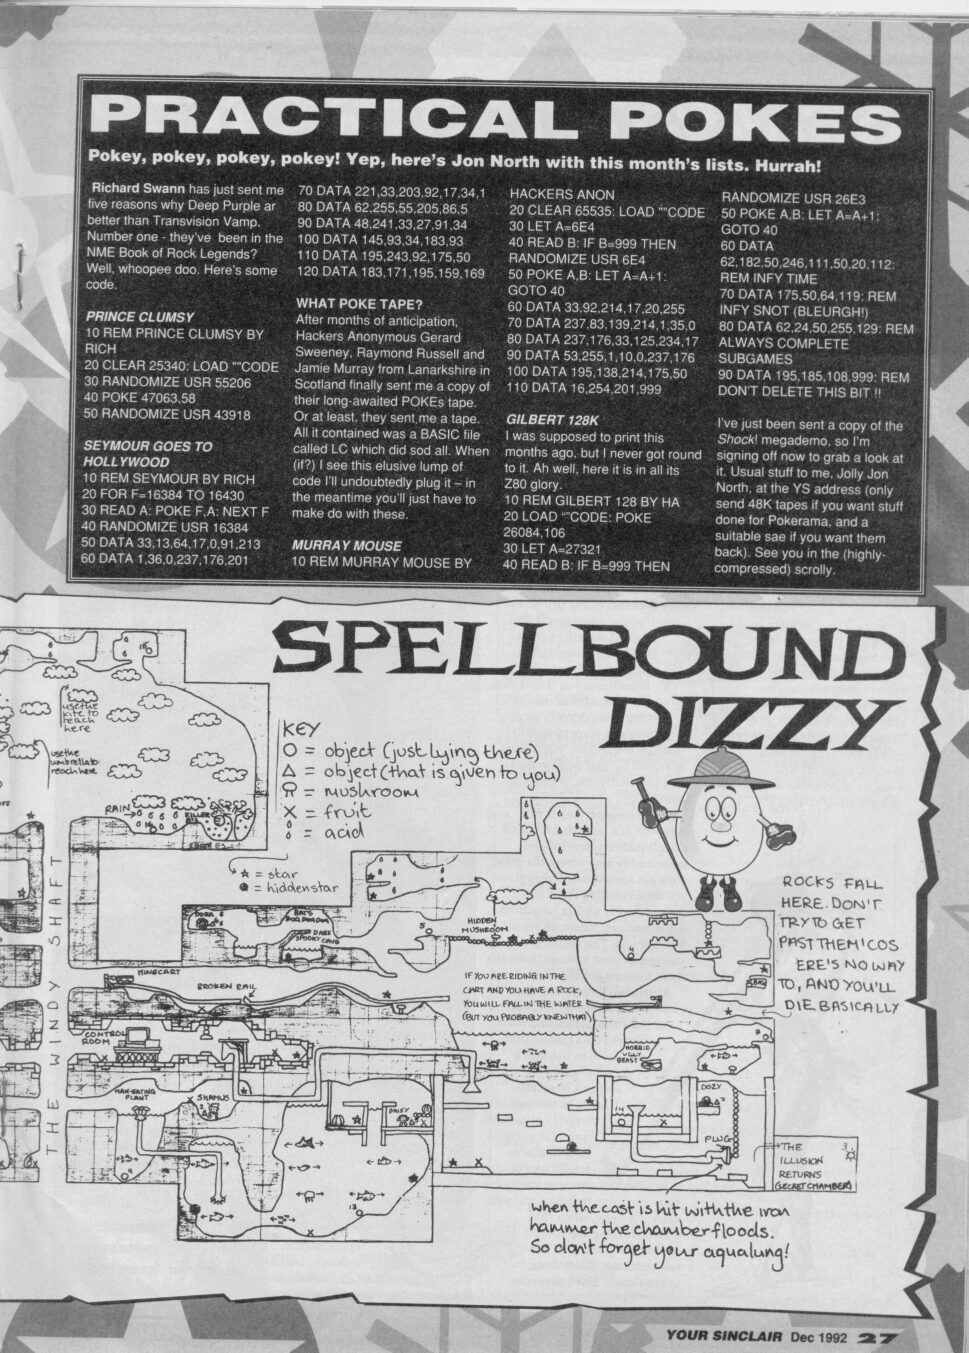 PRACTICAL POKES
Pokey, pokey, pokey, pokey! Yep, here's Jon North with this month's lists. Hurrah!
Richard Swann has just sent me
five reasons why Deep Purple ar
better than Transvision Vamp.
Number one - they've been in the
NME Book of Rock Legends?
Well, whoopee doo. Here's some
code.
PRINCE CLUMSY
10 REM PRINCE CLUMSY BY
RICH
20 CLEAR 25340: LOAD ""CODE
30 RANDOMIZE USR 55206
40 POKE 47063,58
50 RANDOMIZE USR 43918
SEYMOUR GOES TO
HOLLYWOOD
10 REM SEYMOUR BY RICH
20 FOR F=16384 TO 16430
30 READ A: POKE F,A: NEXT F
40 RANDOMIZE USR 16384
50 DATA 33,13,64,17,0,91,213
60 DATA 1,36,0,237,176,201
70 DATA 221,33,203,92,17,34,1
80 DATA 62,255,55,205,86,5
90 DATA 48,241,33,27,91,34
100 DATA 145,93,34,183,93
110 DATA 195,243,92,175,50
120 DATA 183,171,195,159,169
WHAT POKE TAPE?
After months of anticipation,
Hackers Anonymous Gerard
Sweeney, Raymond Russell and
Jamie Murray from Lanarkshire in
Scotland finally sent me a copy of
their long-awaited POKEs tape.
Or at least, they sent me a tape.
All it contained was a BASIC file
called LC which did sod all. When
(if?) I see this elusive lump of
code I'll undoubtedly plug it – in
the meantime you'll just have to
make do with these.
MURRAY MOUSE
10 REM MURRAY MOUSE BY
HACKERS ANON
20 CLEAR 65535: LOAD ""CODE
30 LET A=6E4
40 READ B: IF B=999 THEN
RANDOMIZE USR 6E4
50 POKE A,B: LET A=A+1:
GOTO 40
60 DATA 33,92,214,17,20,255
70 DATA 237,83,139,214,1,35,0
80 DATA 237,176,33,125,234,17
90 DATA 53,255,1,10,0,237,176
100 DATA 195,138,214,175,50
110 DATA 16,254,201,999
GILBERT 128K
I was supposed to print this
months ago, but I never got round
to it. Ah well, here it is in all its
Z80 glory.
10 REM GILBERT 128 BY HA
20 LOAD ""CODE: POKE
26084,106
30 LET A=27321
40 READ B: IF B=999 THEN
RANDOMIZE USR 26E3
50 POKE A,B: LET A=A+1:
GOTO 40
60 DATA
62,182,50,246,111,50,20,112:
REM INFY TIME
70 DATA 175,50,64,119: REM
INFY SNOT (BLEURGH!)
80 DATA 62,24,50,255,129: REM
ALWAYS COMPLETE
SUBGAMES
90 DATA 195,185,108,999: REM
DON'T DELETE THIS BIT !!
I've just been sent a copy of the
Shock! megademo, so I'm
signing off now to grab a look at
it. Usual stuff to me, Jolly Jon
North, at the YS address (only
send 48K tapes if you want stuff
done for Pokerama, and a
suitable sae if you want them
back). See you in the (highly-
compressed) scrolly.
SPELLBOUND
DIZZY
KEY
O = object (just lying there)
△ = object (that is given to you)
= mushroom
X = fruit
= acid
★ = star
= hidden star
use the
kite to
reach
here
use the
umbrella to
reach here
RAIN
KILLER
THE WINDY SHAFT
DORA
DARK
SPOOKY CAVE
HIDDEN
MUSHROOM
MINECART
BROKEN RAIL
IF YOU ARE RIDING IN THE
CART AND YOU HAVE A ROCK,
YOU WILL FALL IN THE WATER
(BUT YOU PROBABLY KNEW THAT)
ROCKS FALL
HERE. DON'T
TRY TO GET
PAST THEM 'COS
ERE'S NO WAY
TO, AND YOU'LL
DIE BASICALLY
CONTROL
ROOM
HORRID
UGLY
BEAST
MAN-EATING
PLANT
SHAMUS
DAISY
DOZY
14
PLUG
THE
ILLUSION
RETURNS
(SECRET CHAMBER)
3
when the cast is hit with the iron
hammer the chamber floods.
So don't forget your aqualung!
YOUR SINCLAIR Dec 1992 27